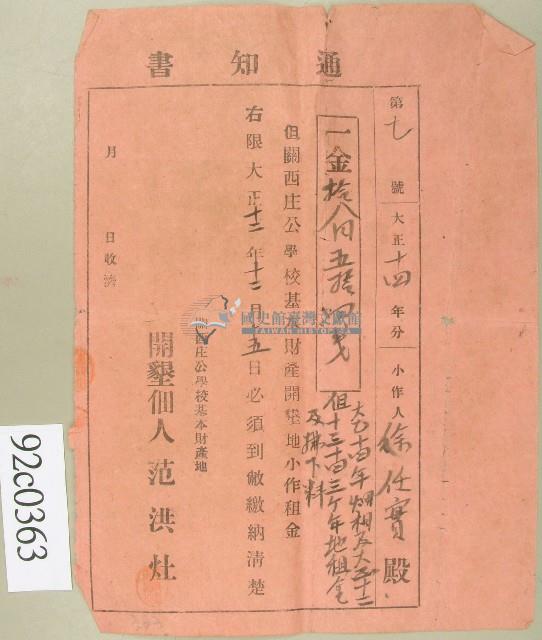 通知書
第七號 大正十四年分 小作人 徐仕實殿
一金拾八円五拾四戋
大正十四年畑租及大正十二
但十三十四三ケ年地租金
及拂下料
但關西庄公學校基本財產開墾地小作租金
右限大正十三年十二月十五日必須到敝繳納清楚
關西庄公學校基本財產地
開墾佃人 范洪灶
月 日收濟
國史館臺灣文獻館
TAIWAN HISTORICA
92c0363